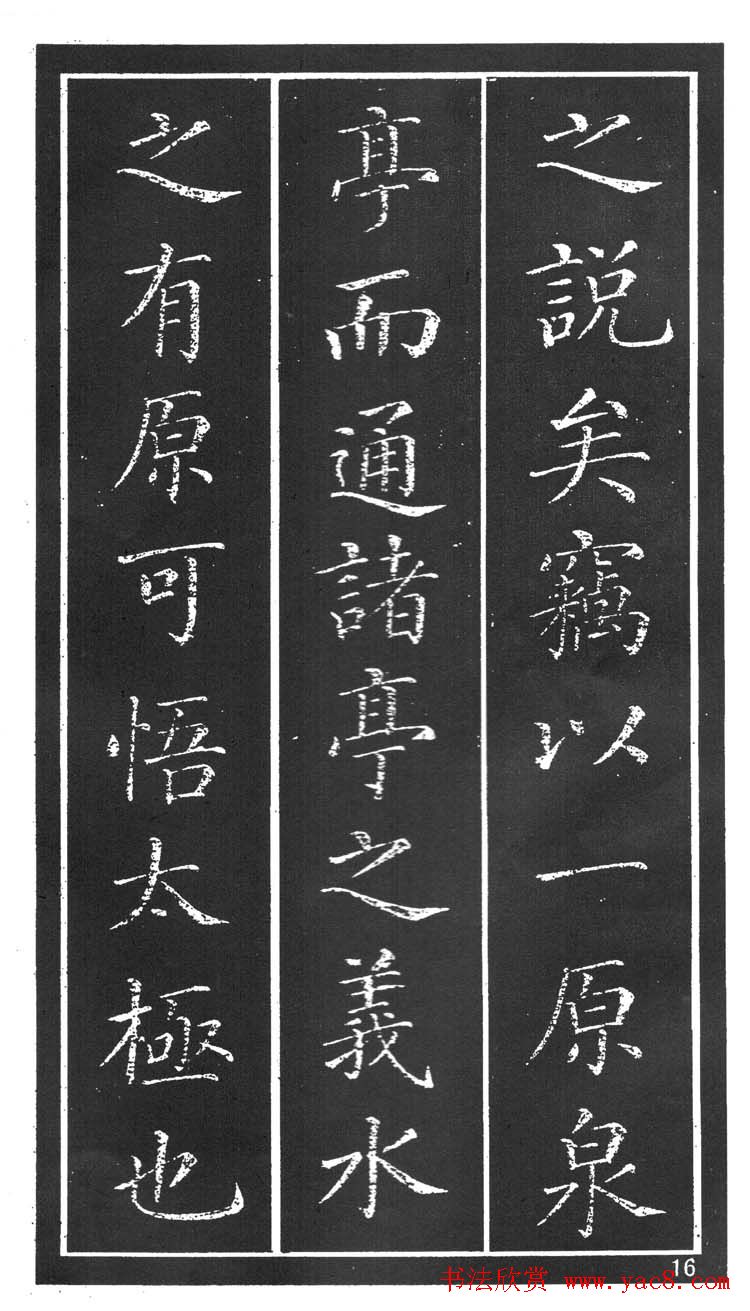 之說矣竊以一原泉
亭而通諸亭之義水
之有原可悟太極也
16
书法欣赏 www.yac8.com